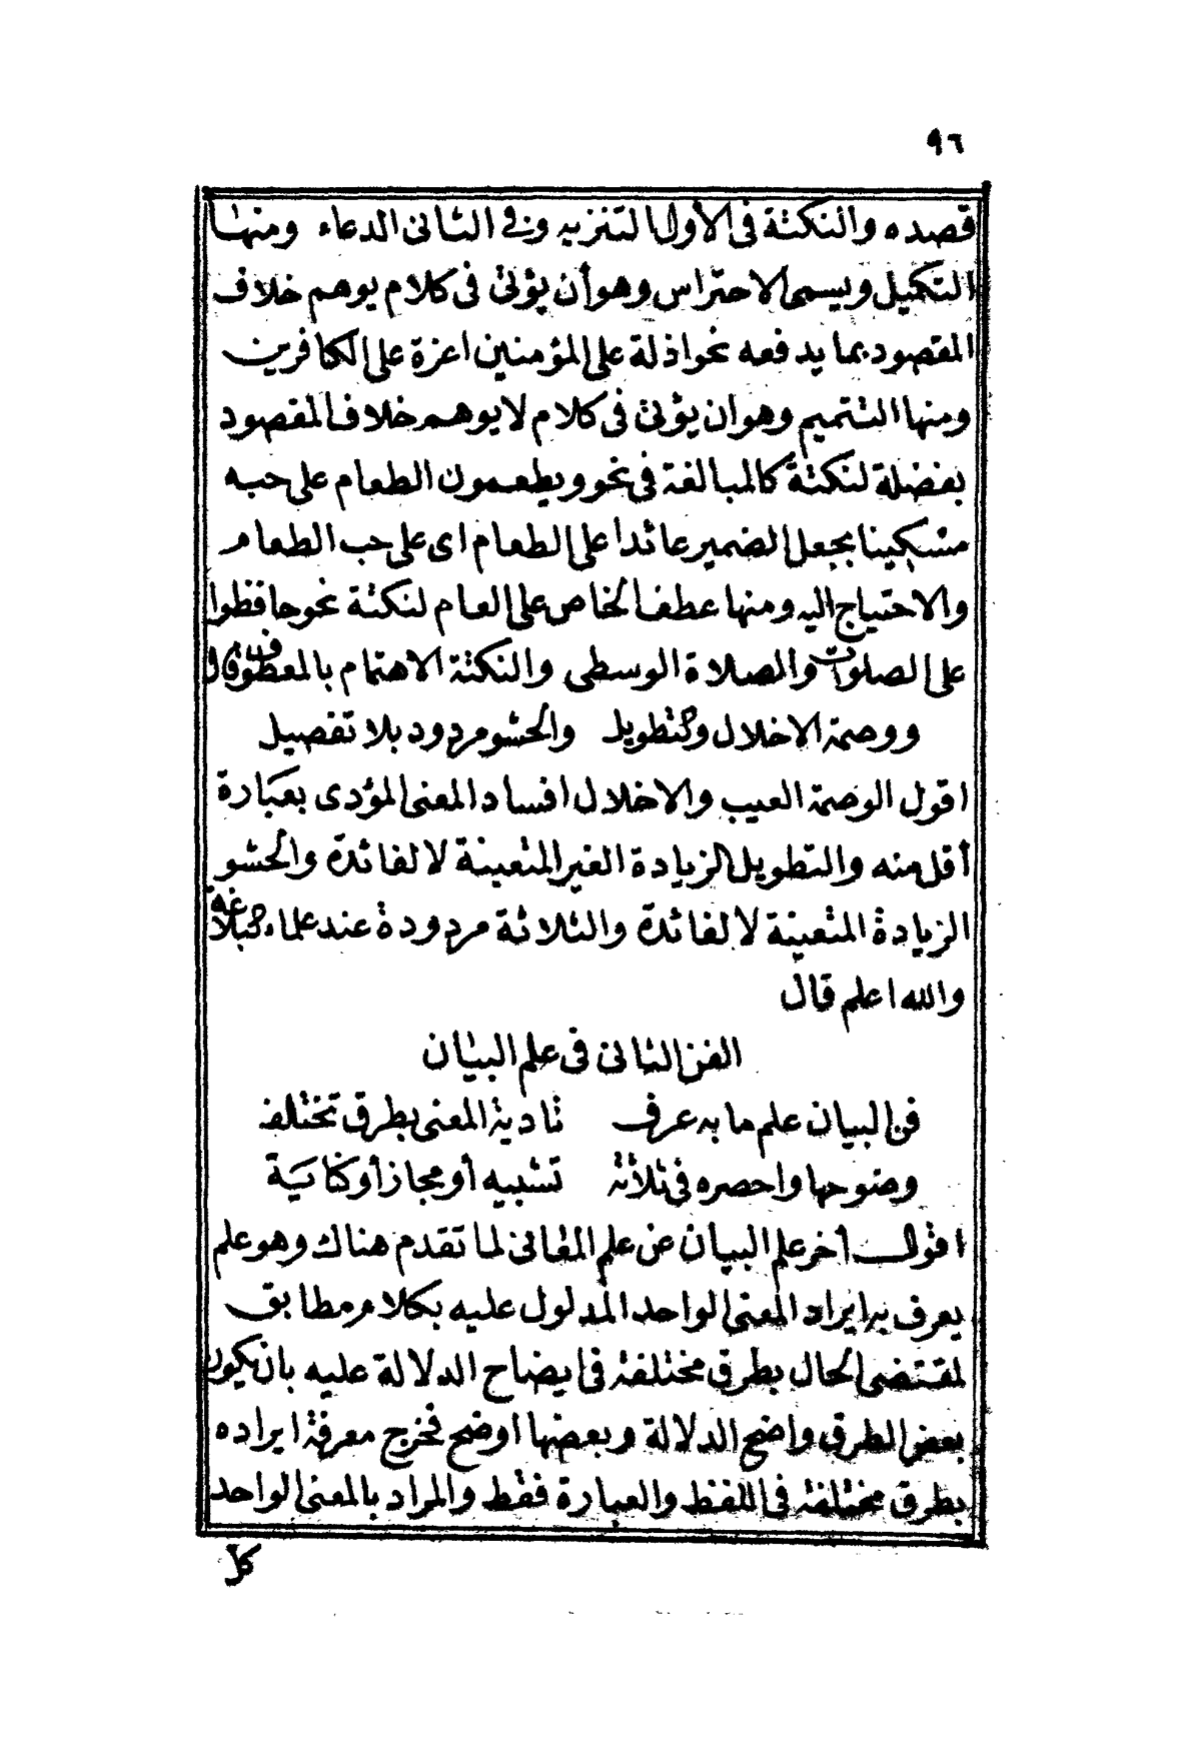 ٩٦
قصده والنكتة فى الأول التنزيه وفى الثانى الدعاء ومنها
التكميل ويسمى الاحتراس وهو أن يؤتى فى كلام يوهم خلاف
المقصود بما يدفعه نحو اذلة على المؤمنين اعزة على الكافرين
ومنها التتميم وهو ان يؤتى فى كلام لا يوهم خلاف المقصود
بفضلة لنكتة كالمبالغة فى نحو ويطعمون الطعام على حبه
مسكينا بجعل الضمير عائدا على الطعام اى على حب الطعام
والاحتياج اليه ومنها عطف الخاص على العام لنكتة نحو حافظوا
على الصلوات والصلاة الوسطى والنكتة الاهتمام بالمعطوف قال
ووصمة الاخلال والتطويل والحشو مردود بلا تفصيل
اقول الوصمة العيب والاخلال افساد المعنى المؤدى بعبارة
أقل منه والتطويل الزيادة الغير المتعينة لا لفائدة والحشو
الزيادة المتعينة لا لفائدة والثلاثة مردودة عند علماء البلاغة
والله اعلم قال
الفن الثانى فى علم البيان
فن البيان علم ما به عرف تادية المعنى بطرق تختلف
وضوحها واحصره فى ثلاثة تشبيه أو مجاز أو كناية
اقول أخر علم البيان عن علم المعانى لما تقدم هناك وهو علم
يعرف به ايراد المعنى الواحد المدلول عليه بكلام مطابق
لمقتضى الحال بطرق مختلفة فى ايضاح الدلالة عليه بان يكون
بعض الطرق واضح الدلالة وبعضها اوضح فخرج معرفة ايراده
بطرق مختلفة فى اللفظ والعبارة فقط والمراد بالمعنى الواحد
كل